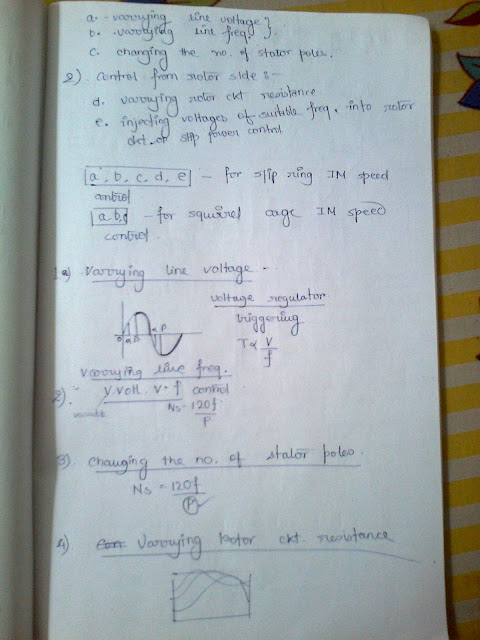 a. varrying line voltage }
b. varrying line freq. }.
c. changing the no. of stator poles.
2) Control from rotor side :-
d. varrying rotor ckt resistance
e. injecting voltages of suitable freq. into rotor
ckt. or slip power control
a, b, c, d, e - for slip ring IM speed
control
a b c - for squirrel cage IM speed
control.
1 a) Varrying line voltage -
voltage regulator
triggering
T ∝ V/f
varrying line freq.
2). V.volt. V.f control
Ns = 120f/P
3) Changing the no. of stator poles.
Ns = 120f/P
4) Varrying Rotor ckt. resistance